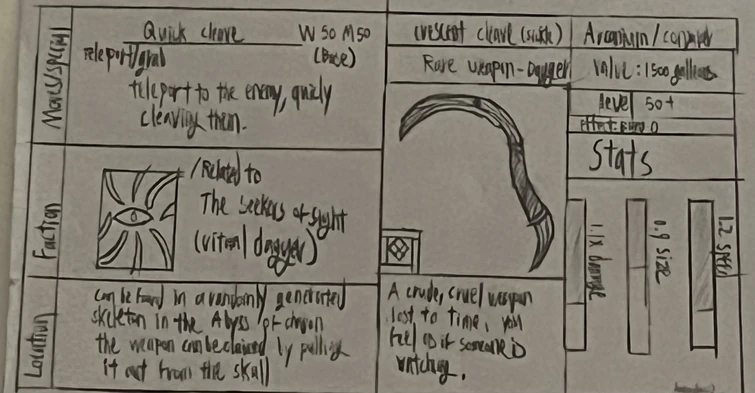 Moves/special
Quick cleave
W 50 M 50
(Base)
Teleport/grab
teleport to the enemy, quicly
cleaving them.
Faction
/Related to
The Seekers of sight
(vital dagger)
Location
can be found in a randomly generated
skeleton in the Abyss of
the weapon can be claimed by pulling
it out from the skull
crescent cleave (sickle)
Rare weapon - Dagger
A crude, cruel weapon
lost to time, you
feel as if someone is
watching.
Arcanium/
Value: 1500 galleons
level 50+
Effect:
Stats
1.1x damage
0.9 size
1.2 speed